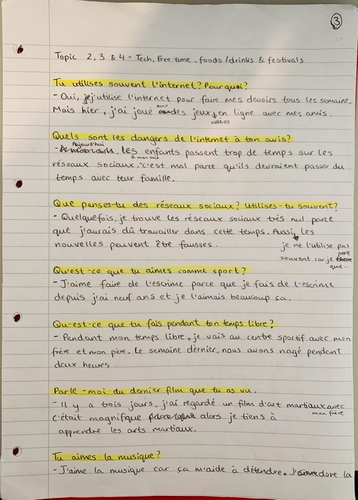 3
Topic 2, 3 & 4 - Tech, Free time, foods/drinks & festivals
Tu utilises souvent l'internet? Pourquoi?
- Oui, j'utilise l'internet pour faire mes devoirs tous les semaine.
Mais hier, j'ai joué des jeux vidéos en ligne avec mes amis.
Quels sont les dangers de l'internet à ton avis?
- Aujourd'hui les enfants passent trop de temps sur les
réseaux sociaux. à mon avis c'est mal parce qu'ils devraient passer du
temps avec leur famille.
Que penses-tu des réseaux sociaux? Utilises-tu souvent?
- Quelquefois, je trouve les réseaux sociaux très nul parce
que j'aurais dû travailler dans cette temps. Aussi, les
nouvelles peuvent être fausses.
je ne l'utilise pas
souvent car je
que...
Qu'est-ce que tu aimes comme sport?
- J'aime faire de l'escrime parce que je fais de l'escrime
depuis j'ai neuf ans et je l'aimais beaucoup ça.
Qu'est-ce que tu fais pendant ton temps libre?
- Pendant mon temps libre, je vais au centre sportif avec mon
frère et mon père. Le semaine dernier, nous avons nagé pendant
deux heures.
Parle-moi du dernier film que tu as vu.
- Il y a trois jours, j'ai regardé un film d'art martiaux avec
mon frère
C'était magnifique alors je tiens à
apprendre les arts martiaux.
Tu aimes la musique?
- J'aime la musique car ça m'aide à détendre. J'adore la